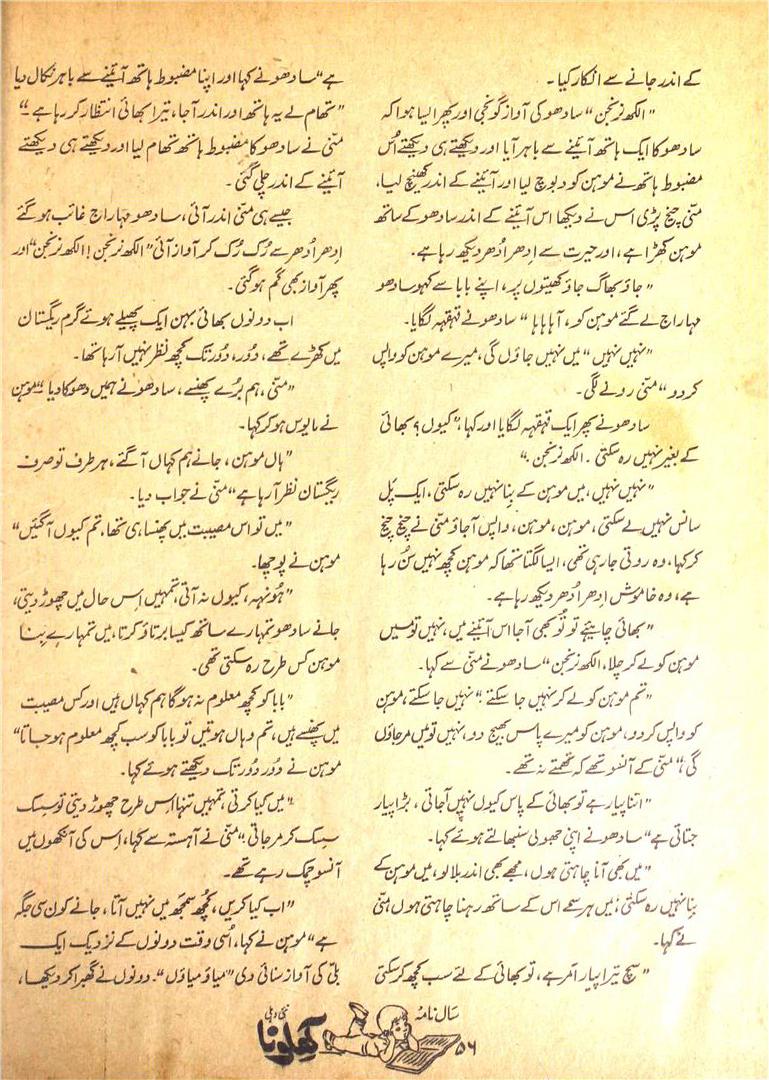 کے اندر جانے سے انکار کیا۔
"الکھ نرنجن" سادھو کی آواز گونجی اور پھر ایسا ہوا کہ
سادھو کا ایک ہاتھ آئینے سے باہر آیا اور دیکھتے ہی دیکھتے اُس
مضبوط ہاتھ نے موہن کو دبوچ لیا اور آئینے کے اندر کھینچ لیا،
منّی چیخ پڑی اس نے دیکھا اس آئینے کے اندر سادھو کے ساتھ
موہن کھڑا ہے، اور حیرت سے اِدھر اُدھر دیکھ رہا ہے۔
"جاؤ بھاگ جاؤ کھیتوں پر، اپنے بابا سے کہو سادھو
مہاراج لے گئے موہن کو، آہاہاہا" سادھو نے قہقہہ لگایا۔
"نہیں نہیں" میں نہیں جاؤں گی، میرے موہن کو واپس
کر دو" منّی رونے لگی۔
سادھو نے پھر ایک قہقہہ لگایا اور کہا، "کیوں؟ بھائی
کے بغیر نہیں رہ سکتی۔ الکھ نرنجن۔"
"نہیں نہیں، میں موہن کے بِنا نہیں رہ سکتی، ایک پَل
سانس نہیں لے سکتی، موہن، موہن، واپس آجاؤ منّی نے چیخ چیخ
کر کہا، وہ روتی جا رہی تھی، ایسا لگتا تھا کہ موہن کچھ نہیں سُن رہا
ہے، وہ خاموش اِدھر اُدھر دیکھ رہا ہے۔
"بھائی چاہیئے تو تُو بھی آجا اس آئینے میں، نہیں تو میں
موہن کو لے کر چلا، الکھ نرنجن" سادھو نے منّی سے کہا۔
"تم موہن کو لے کر نہیں جا سکتے" نہیں جا سکتے، موہن
کو واپس کر دو، موہن کو میرے پاس بھیج دو، نہیں تو میں مر جاؤں
گی" منّی کے آنسو تھے کہ تھمتے نہ تھے۔
"اتنا پیار ہے تو بھائی کے پاس کیوں نہیں آجاتی، بڑا پیار
جتاتی ہے" سادھو نے اپنی جھولی سنبھالتے ہوئے کہا۔
"میں بھی آنا چاہتی ہوں، مجھے بھی اندر بلا لو، میں موہن کے
بِنا نہیں رہ سکتی، میں ہر سمے اس کے ساتھ رہنا چاہتی ہوں منّی
نے کہا۔
"سچ تیرا پیار امر ہے، تو بھائی کے لئے سب کچھ کر سکتی
ہے" سادھو نے کہا اور اپنا مضبوط ہاتھ آئینے سے باہر نکال دیا
"تھام لے یہ ہاتھ اور اندر آجا، تیرا بھائی انتظار کر رہا ہے"
منّی نے سادھو کا مضبوط ہاتھ تھام لیا اور دیکھتے ہی دیکھتے
آئینے کے اندر چلی گئی۔
جیسے ہی منّی اندر آئی، سادھو مہاراج غائب ہو گئے
اِدھر اُدھر سے رُک رُک کر آواز آئی "الکھ نرنجن! الکھ نرنجن" اور
پھر آواز بھی گم ہو گئی۔
اب دونوں بھائی بہن ایک پھیلے ہوئے گرم ریگستان
میں کھڑے تھے، دُور، دُور تک کچھ نظر نہیں آرہا تھا۔
"منّی، ہم بُرے پھنسے، سادھو نے ہمیں دھوکا دیا" موہن
نے مایوس ہو کر کہا۔
"ہاں موہن، جانے ہم کہاں آگئے، ہر طرف تو صرف
ریگستان نظر آرہا ہے" منّی نے جواب دیا۔
"میں تو اس مصیبت میں پھنسا ہی تھا، تم کیوں آگئیں"
موہن نے پوچھا۔
"ہُونہہ، کیوں نہ آتی، تمہیں اِس حال میں چھوڑ دیتی،
جانے سادھو تمہارے ساتھ کیسا برتاؤ کرتا، میں تمہارے بِنا
موہن کس طرح رہ سکتی تھی۔
"بابا کو کچھ معلوم نہ ہو گا ہم کہاں ہیں اور کس مصیبت
میں پھنسے ہیں، تم وہاں ہوتیں تو بابا کو سب کچھ معلوم ہو جاتا"
موہن نے دُور دُور تک دیکھتے ہوئے کہا۔
"میں کیا کرتی، تمہیں تنہا اس طرح چھوڑ دیتی تو سِسک
سِسک کر مر جاتی" منّی نے آہستہ سے کہا، اِس کی آنکھوں میں
آنسو چمک رہے تھے۔
"اب کیا کریں، کچھ سمجھ میں نہیں آتا، جانے کون سی جگہ
ہے" موہن نے کہا، اُسی وقت دونوں کے نزدیک ایک
بلّی کی آواز سنائی دی "میاؤ میاؤں"۔ دونوں نے گھبرا کر دیکھا،
سال نامہ
کھلونا نئی دہلی
۵۶